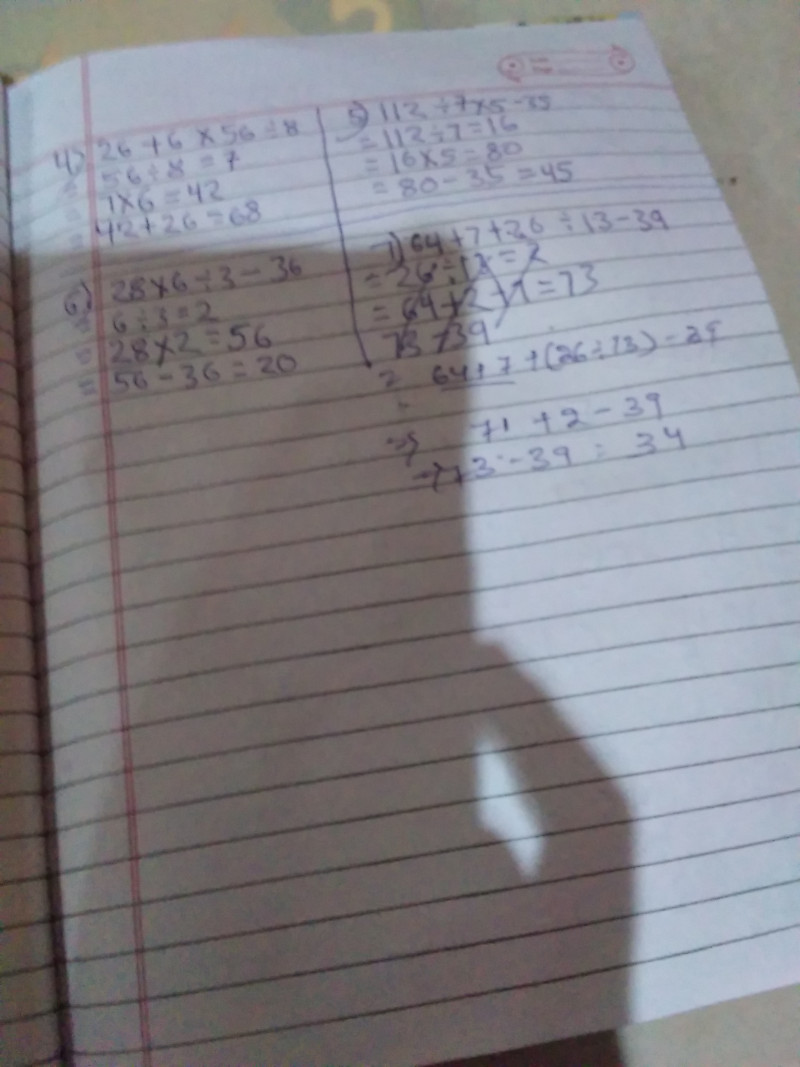 4) 26 + 6 × 56 ÷ 8
= 56 ÷ 8 = 7
= 7×6 = 42
= 42 + 26 = 68
6) 28×6 ÷ 3 - 36
= 6 ÷ 3 = 2
= 28×2 = 56
= 56 - 36 = 20
5) 112 ÷ 7×5 - 35
= 112 ÷ 7 = 16
= 16×5 = 80
= 80 - 35 = 45
7) 64 + 7 + 26 ÷ 13 - 39
= 26 ÷ 13 = 2
= 64 + 2 + 7 = 73
73 - 39
= 64 + 7 + (26 ÷ 13) - 39
⇒ 71 + 2 - 39
⇒ 73 - 39 = 34